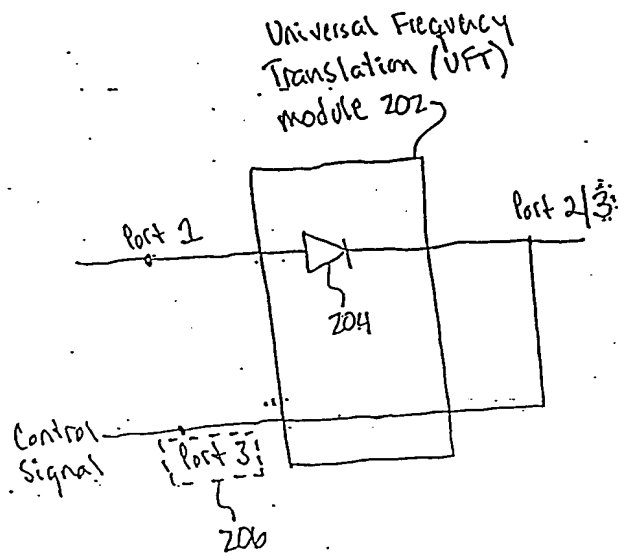 Universal Frequency
Translation (UFT)
module 202
Port 1
Port 2/3
204
Control
Signal
Port 3
206